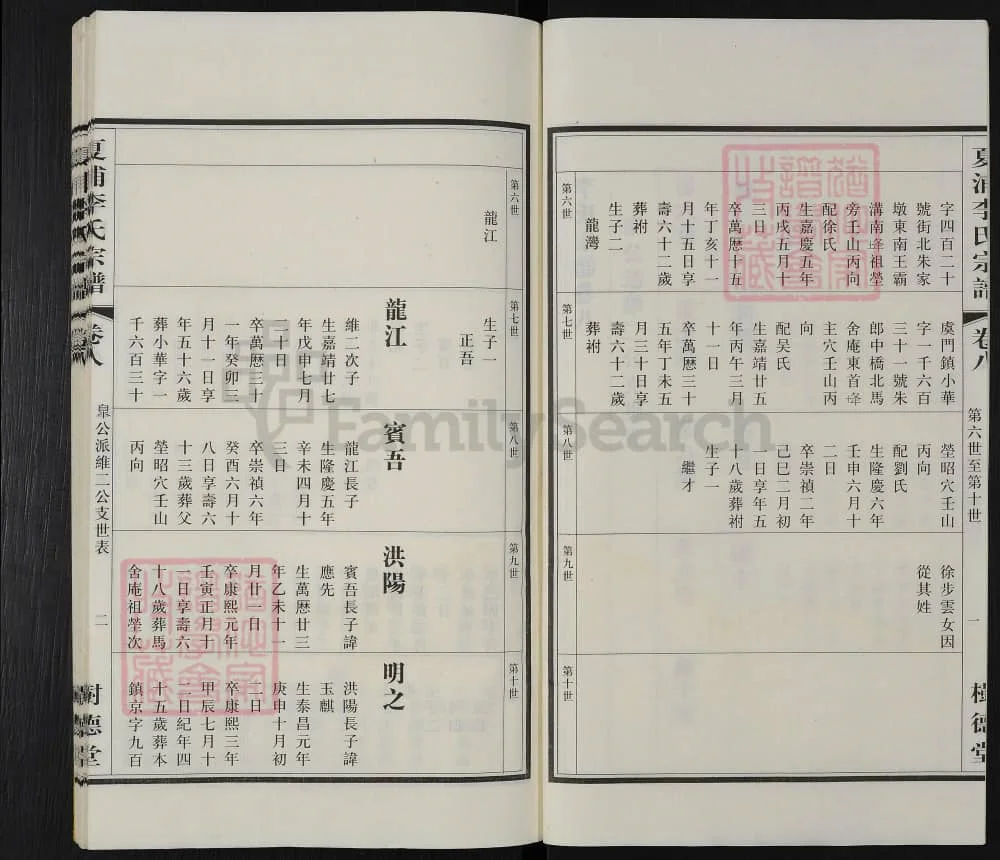 夏浦李氏宗譜
卷八
第六世至第十世
一
樹德堂
第六世
字四百二十
號街北朱家
墩東南王霸
溝南峰祖塋
旁壬山丙向
配徐氏
生嘉慶五年
丙戌五月十
三日
卒萬曆十五
年丁亥十一
月十五日享
壽六十二歲
葬祔
生子二
龍灣
第七世
虞門鎮小華
字一千六百
三十一號朱
郎中橋北馬
舍庵東首峰
主穴壬山丙
向
配吴氏
生嘉靖廿五
年丙午三月
十一日
卒萬曆三十
五年丁未五
月三十日享
壽六十二歲
葬祔
第八世
塋昭穴壬山
丙向
配劉氏
生隆慶六年
壬申六月十
二日
卒崇禎二年
己巳二月初
一日享年五
十八歲葬祔
生子一
繼才
第九世
徐步雲女因
從其姓
第十世
第六世
龍江
第七世
生子一
正吾
龍江
維二次子
生嘉靖廿七
年戊申七月
二十日
卒萬曆三十
一年癸卯三
月十一日享
年五十六歲
葬小華字一
千六百三十
第八世
賓吾
龍江長子
生隆慶五年
辛未四月十
三日
卒崇禎六年
癸酉六月十
八日享壽六
十三歲葬父
塋昭穴壬山
丙向
第九世
洪陽
賓吾長子諱
應先
生萬曆廿三
年乙未十一
月廿一日
卒康熙元年
壬寅正月十
一日享壽六
十八歲葬馬
舍庵祖塋次
第十世
明之
洪陽長子諱
玉麒
生泰昌元年
庚申十月初
二日
卒康熙三年
甲辰七月十
二日紀年四
十五歲葬本
鎮京字九百
夏浦李氏宗譜
卷八
皐公派維二公支世表
二
樹德堂
FamilySearch